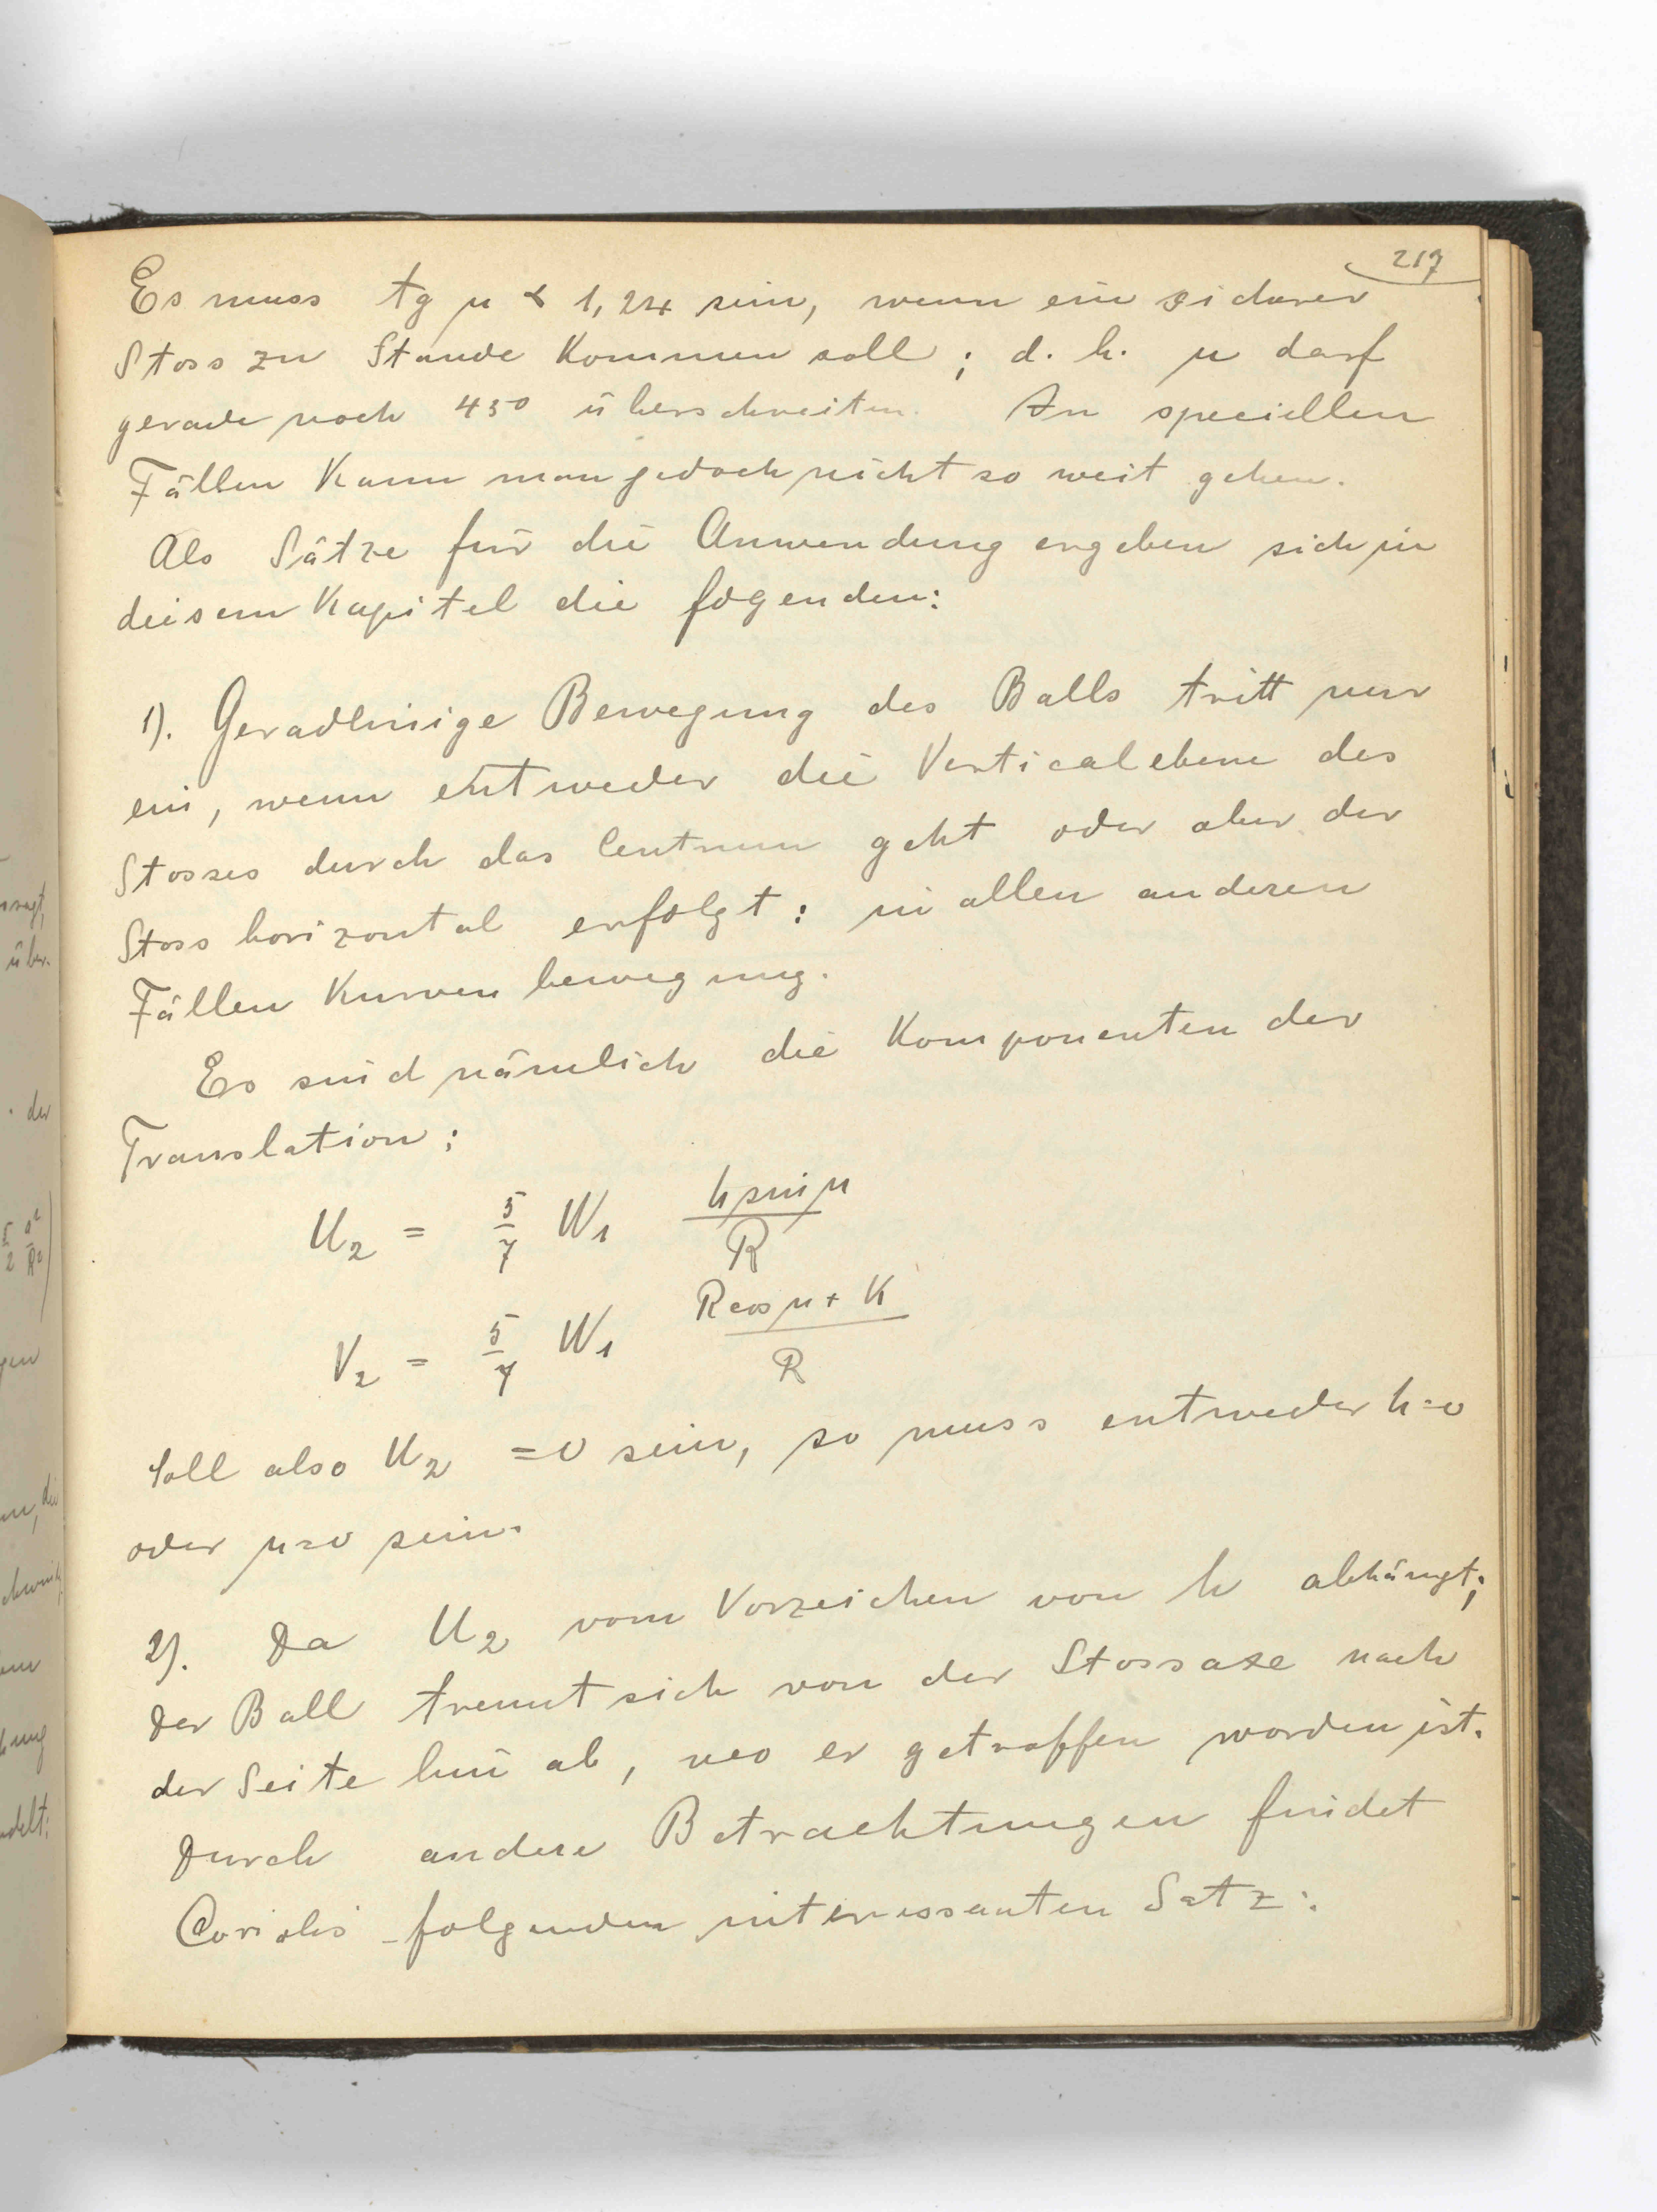 217
Es muss tg μ < 1,24 sein, wenn ein sicherer
Stoss zu Stande kommen soll; d. h. μ darf
gerade noch 45° überschreiten. In speciellen
Fällen kann man jedoch nicht so weit gehen.
Als Sätze für die Anwendung ergeben sich in
diesem Kapitel die fogenden:
1). Geradlinige Bewegung des Balls tritt nur
ein, wenn entweder die Verticalebene des
Stosses durch das Centrum geht oder aber der
Stoss horizontal erfolgt: in allen anderen
Fällen Kurvenbewegung.
Es sind nämlich die Komponenten der
Translation:
U₂ = 5/7 W₁ h sin μ / R
V₂ = 5/7 W₁ R cos μ + K / R
Soll also U₂ = 0 sein, so muss entweder h = 0
oder μ = 0 sein.
2). Da U₂ vom Vorzeichen von h abhängt;
Der Ball trennt sich von der Stossaxe nach
der Seite hin ab, wo er getroffen worden ist.
Durch andere Betrachtungen findet
Coriolis folgenden interessanten Satz: